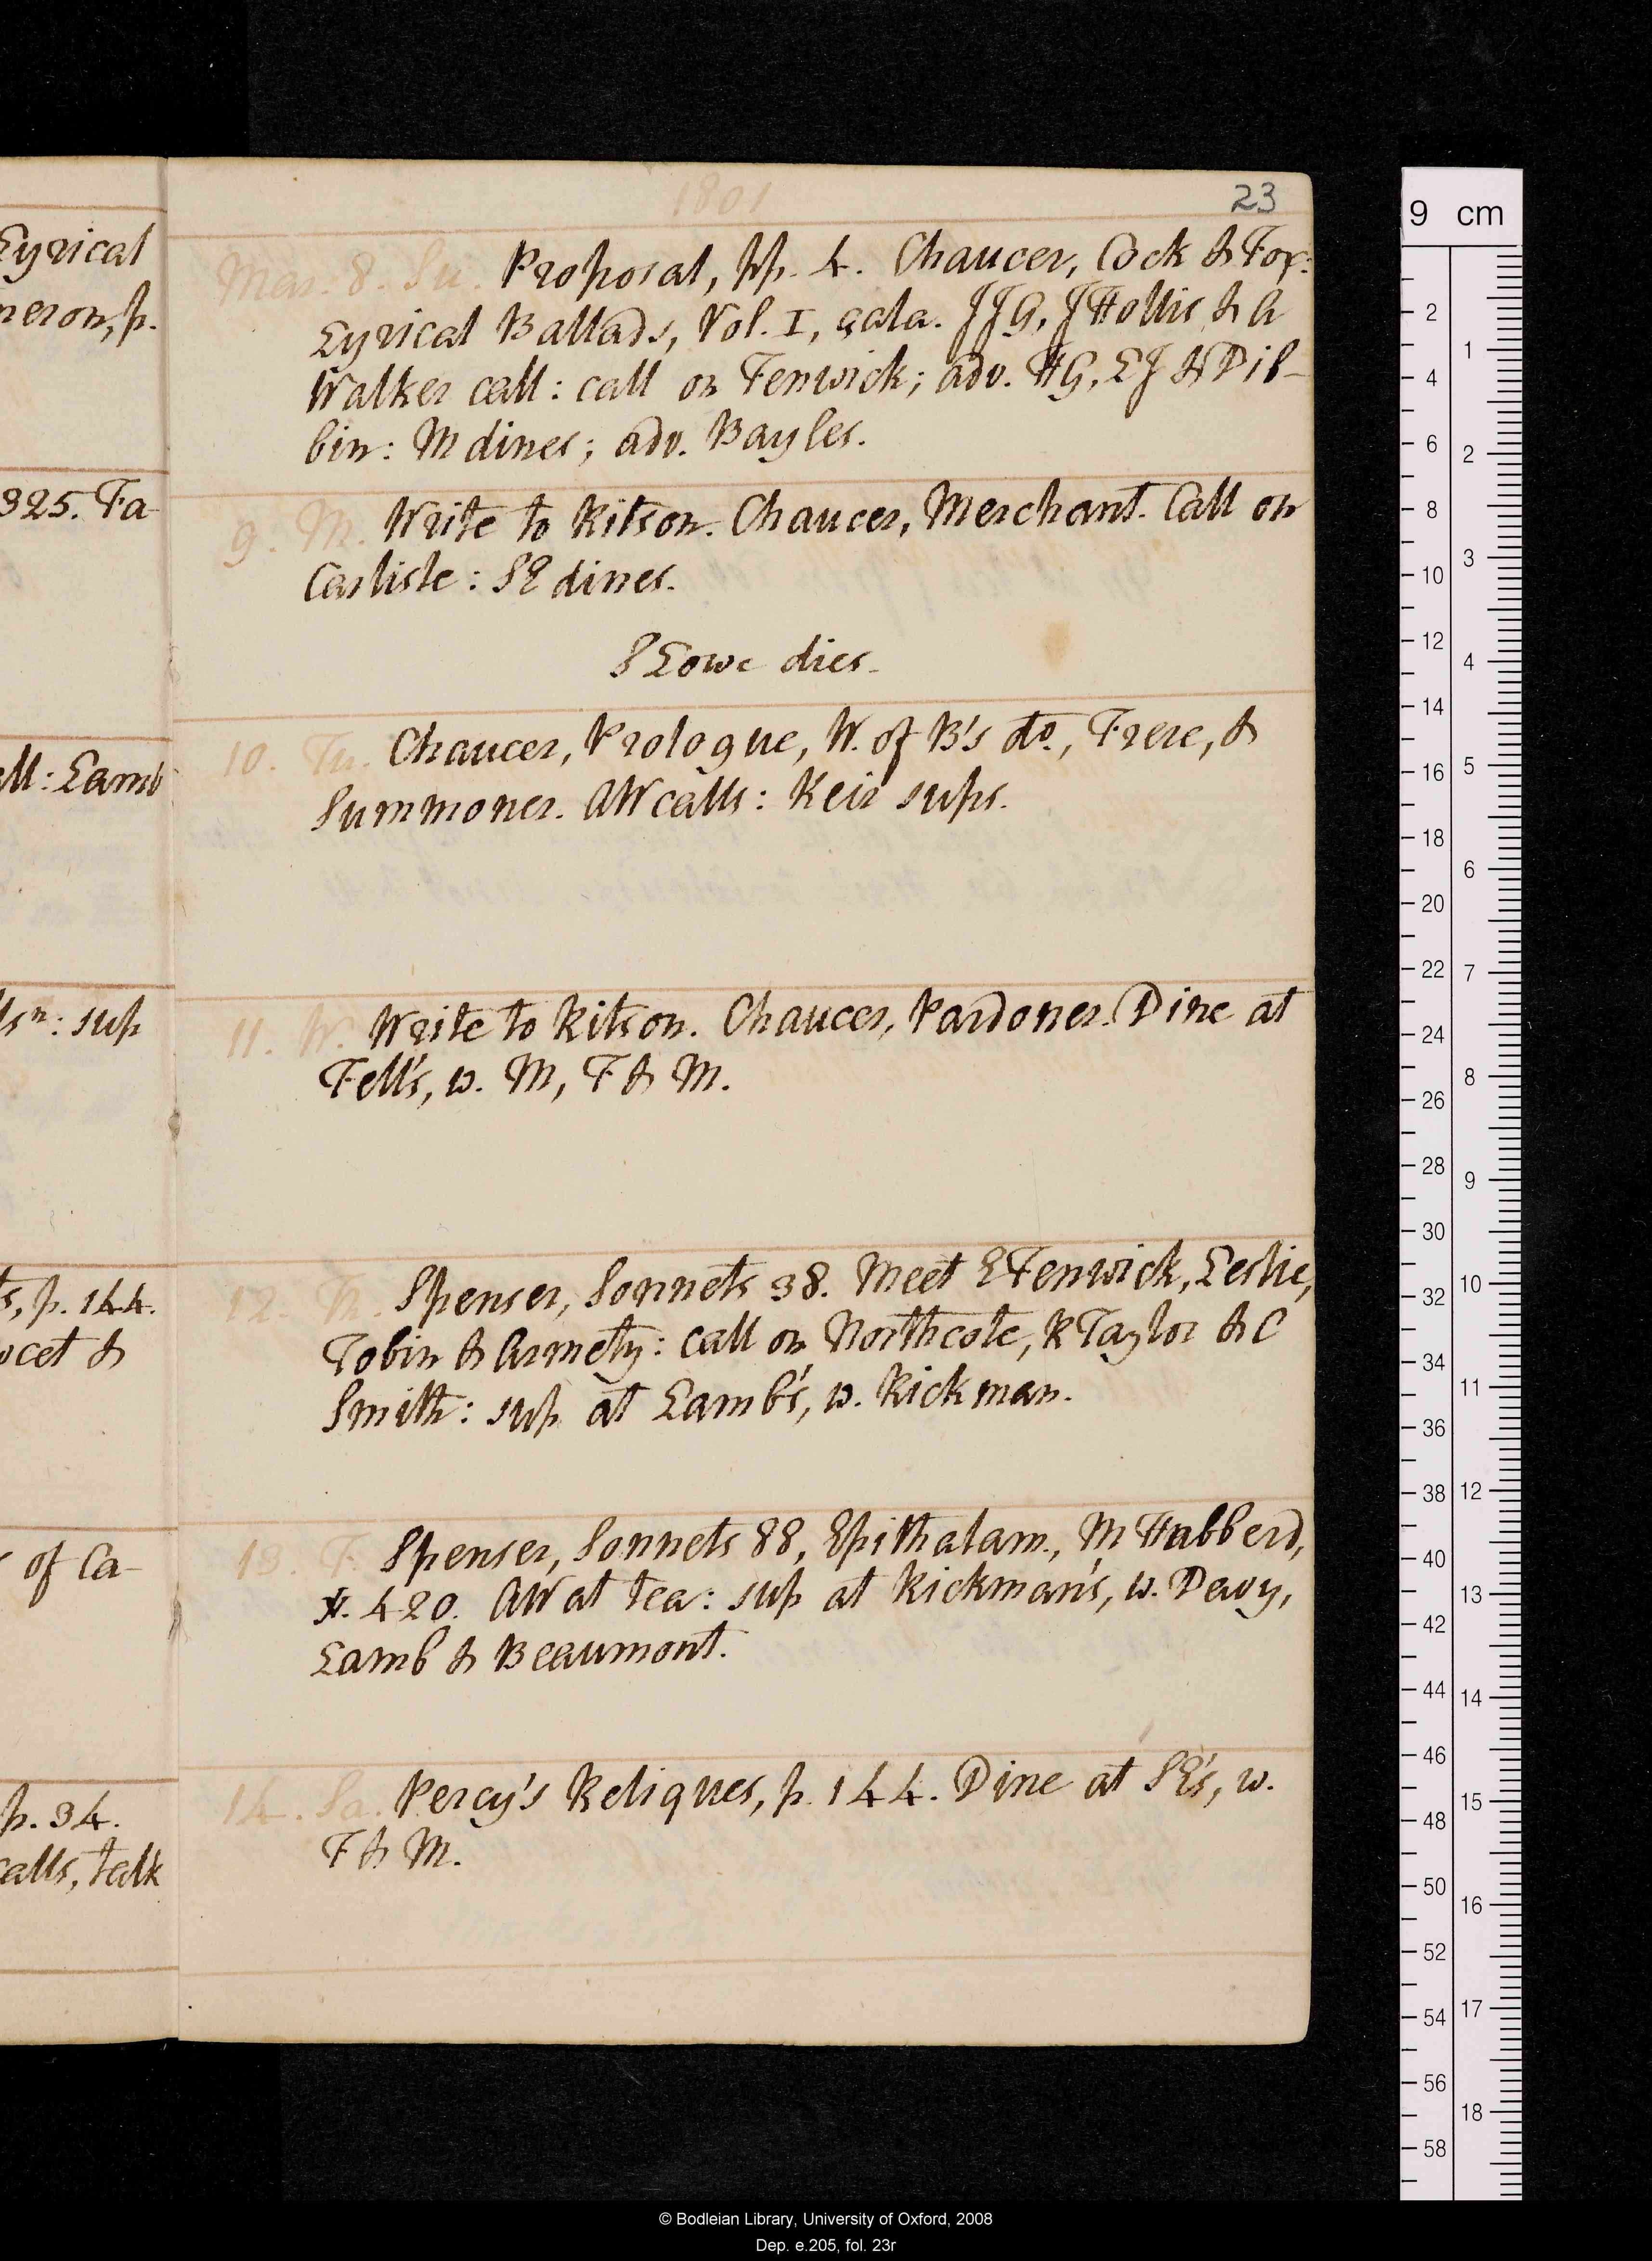 Lyrical
neron, p.
325. Fa-
all: Lamb
sn: sup
ts, p. 144.
ocet &
of Ca-
p. 34.
calls, talk
1801
23
Mar. 8. Su. Proposal, pp. 4. Chaucer, Cock & Fox:
Lyrical Ballads, Vol. I, çala. JJG, J Hollis & A
Walker call: call on Fenwick; adv. HG, LJ & Dib-
bin: M dines; adv. Bayles.
9. M. Write to Ritson. Chaucer, Merchant. Call on
Carlisle: SE dines.
S Lowe dies.
10. Tu. Chaucer, Prologue, W. of B's do., Frere, &
Summoner. AW calls: Keir sups.
11. W. Write to Ritson. Chaucer, Pardoner. Dine at
Fell's, w. M, F & M.
12. Th. Spenser, Sonnets 38. Meet E Fenwick, Leslie,
Tobin & Arnety: call on Northcote, R Taylor & C
Smith: sup at Lamb's, w. Rickman.
13. F. Spenser, Sonnets 88, Epithalam., M Hubberd,
v. 420. AW at tea: sup at Rickman's, w. Davy,
Lamb & Beaumont.
14. Sa. Percy's Reliques, p. 144. Dine at SE's, w.
F & M.
9 cm
2
4
6
8
10
12
14
16
18
20
22
24
26
28
30
32
34
36
38
40
42
44
46
48
50
52
54
56
58
1
2
3
4
5
6
7
8
9
10
11
12
13
14
15
16
17
18
© Bodleian Library, University of Oxford, 2008
Dep. e.205, fol. 23r